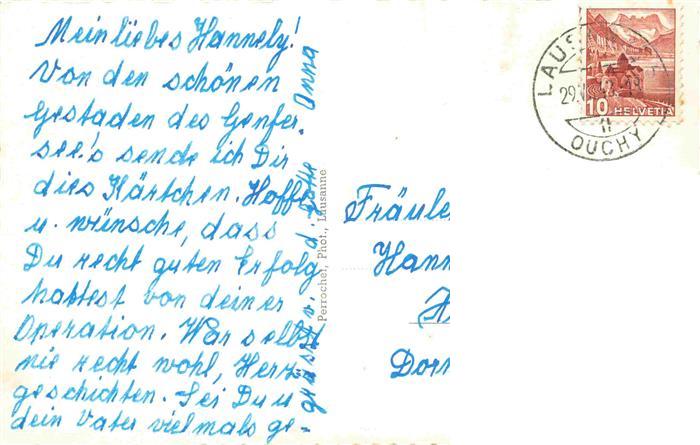 Mein liebes Hannely!
Von den schönen
Gestaden des Genfer-
see's sende ich Dir
dies Kärtchen. Hoffe
u. wünsche, dass
Du recht guten Erfolg
hattest von deiner
Operation. War selbst
nie recht wohl, Herz
geschichten. Sei Du u
dein Vater vielmals ge-
grüsst v. d. Gotte Anna
Perrochet, Phot., Lausanne
LAUS
29.
OUCHY
10 HELVETIA
Fräule
Hann
Dorn